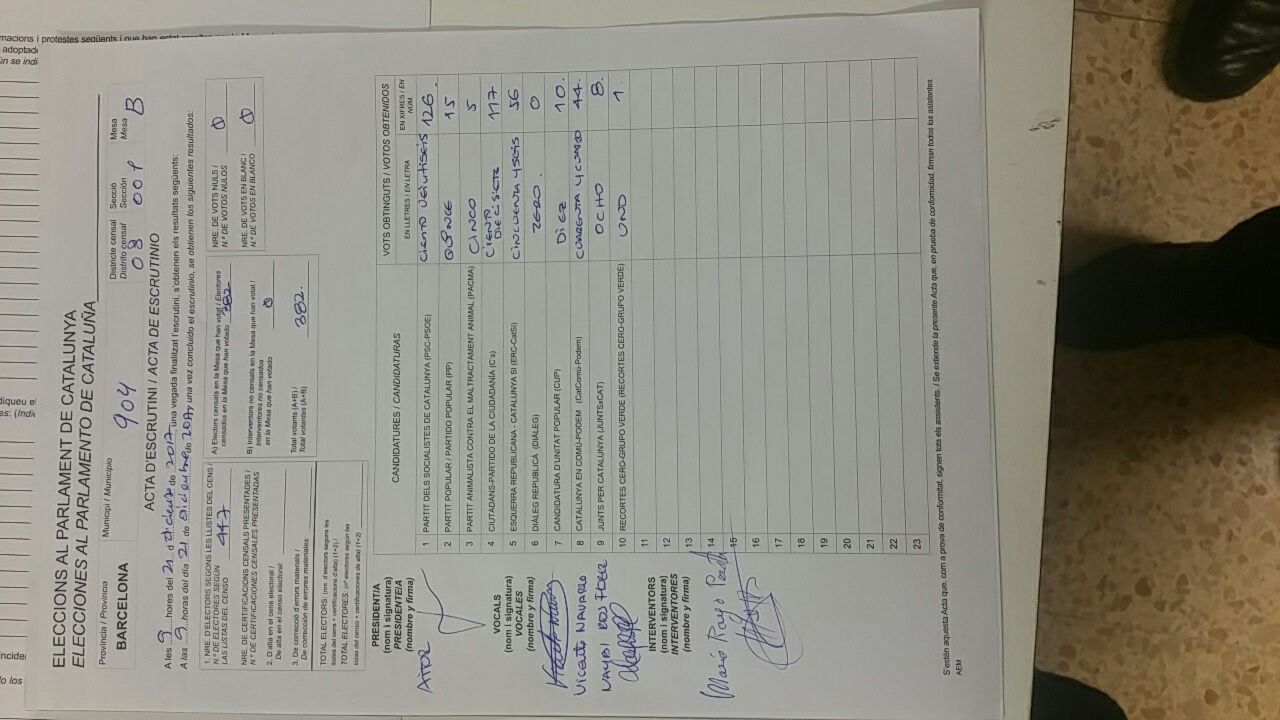 ELECCIONS AL PARLAMENT DE CATALUNYA
ELECCIONES AL PARLAMENTO DE CATALUÑA
Província / Provincia
BARCELONA
Municipi / Municipio
904
Districte censal
Distrito censal
08
Secció
Sección
001
Mesa
Mesa B
ACTA D'ESCRUTINI / ACTA DE ESCRUTINIO
A les 9 hores del 21 d de 2017, una vegada finalitzat l'escrutini, s'obtenen els resultats següents:
A las 9 horas del día 21 de Diciembre de 2017, una vez concluido el escrutinio, se obtienen los siguientes resultados:
1. NRE. D'ELECTORS SEGONS LES LLISTES DEL CENS /
N.º DE ELECTORES SEGÚN
LAS LISTAS DEL CENSO 447
NRE. DE CERTIFICACIONS CENSALS PRESENTADES /
N.º DE CERTIFICACIONES CENSALES PRESENTADAS
2. D'alta en el cens electoral /
De alta en el censo electoral:
3. De correcció d'errors materials /
De corrección de errores materiales:
TOTAL ELECTORS: (nre. d'electors segons les
llistes del cens + certificacions d'alta) (1+2) /
TOTAL ELECTORES: (nº electores según las
listas del censo + certificaciones de alta) (1+2)
A) Electors censats en la Mesa que han votat / Electores
censados en la Mesa que han votado 382
B) Interventors no censats en la Mesa que han votat /
Interventores no censados
en la Mesa que han votado 0
Total votants (A+B) /
Total votantes (A+B) 382.
NRE. DE VOTS NULS /
N.º DE VOTOS NULOS 0
NRE. DE VOTS EN BLANC /
N.º DE VOTOS EN BLANCO 0
PRESIDENT/A
(nom i signatura)
PRESIDENTE/A
(nombre y firma)
AITOR
VOCALS
(nom i signatura)
VOCALES
(nombre y firma)
Vicente NAVARRO
INTERVENTORS
(nom i signatura)
INTERVENTORES
(nombre y firma)
Mario Rayo
CANDIDATURES / CANDIDATURAS
VOTS OBTINGUTS / VOTOS OBTENIDOS
EN LLETRES / EN LETRA
EN XIFRES / EN NÚM
1 PARTIT DELS SOCIALISTES DE CATALUNYA (PSC-PSOE) CIENTO VEINTISEIS 126.
2 PARTIT POPULAR / PARTIDO POPULAR (PP) QUINCE 15
3 PARTIT ANIMALISTA CONTRA EL MALTRACTAMENT ANIMAL (PACMA) CINCO 5
4 CIUTADANS-PARTIDO DE LA CIUDADANÍA (C's) CIENTO DIECISIETE 117
5 ESQUERRA REPUBLICANA - CATALUNYA SÍ (ERC-CatSí) CINCUENTA Y SEIS 56
6 DIÀLEG REPUBLICÀ (DIÀLEG) ZERO. 0
7 CANDIDATURA D'UNITAT POPULAR (CUP) DIEZ 10.
8 CATALUNYA EN COMÚ-PODEM (CatComú-Podem) CUARENTA Y CUATRO 44.
9 JUNTS PER CATALUNYA (JUNTSxCAT) OCHO 8.
10 RECORTES CERO-GRUPO VERDE (RECORTES CERO-GRUPO VERDE) UNO 1.
11
12
13
14
15
16
17
18
19
20
21
22
23
S'estén aquesta Acta que, com a prova de conformitat, signen tots els assistents. / Se extiende la presente Acta que, en prueba de conformidad, firman todos los asistentes.
AEM